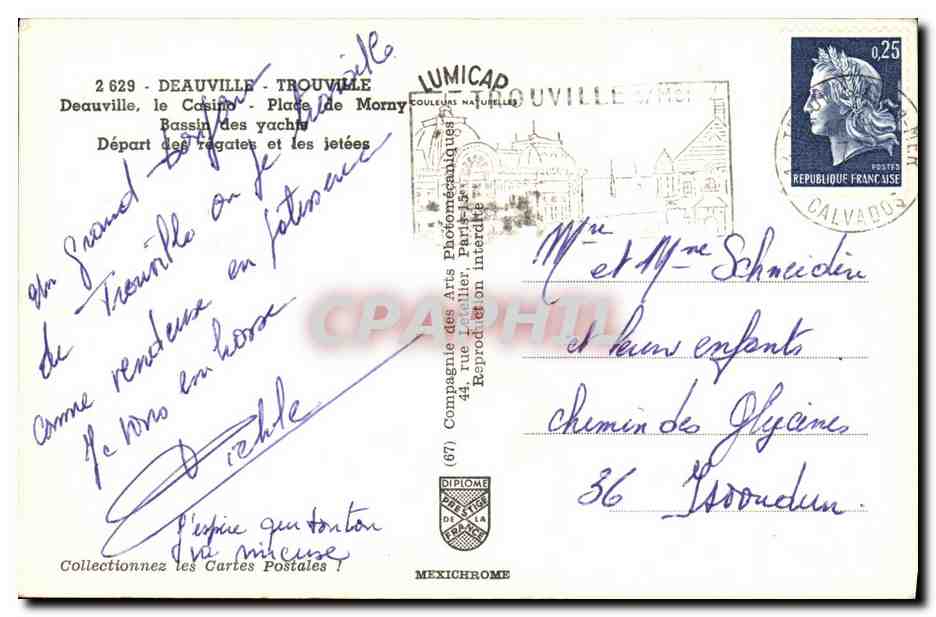 2 629 - DEAUVILLE - TROUVILLE
Deauville, le Casino - Place de Morny
Bassin des yachts
Départ des régates et les jetées
un grand bonjour
de Trouville ou je travaille
comme vendeuse en patisserie
Je vous embrasse
J'espère que tonton
va mieuse
Collectionnez les Cartes Postales !
LUMICAP
COULEURS NATURELLES
TROUVILLE S/MER
(67) Compagnie des Arts Photomécaniques
44, rue Letellier, Paris-15e
Reproduction interdite
DIPLOME
PRESTIGE
DE LA
FRANCE
MEXICHROME
0,25
POSTES
REPUBLIQUE FRANÇAISE
CALVADOS
Mre et Mme Schneider
et leur enfants
chemin des Glycines
36 Issoudun
CPAPHIL